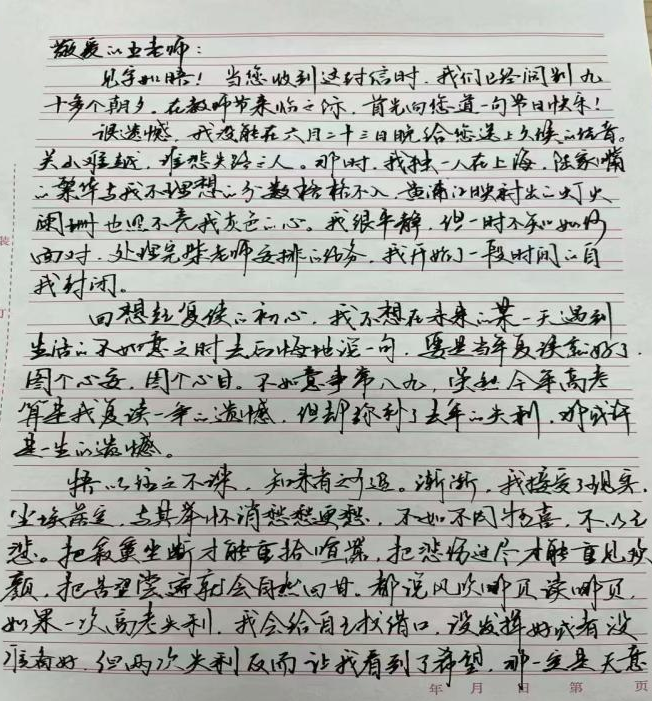 敬爱的王老师：
见字如晤！当您收到这封信时，我们已经阔别九
十多个朝夕，在教师节来临之际，首先向您道一句节日快乐！
很遗憾，我没能在六月二十三日晚给您送上久候的佳音。
关山难越，谁悲失路之人。那时，我独一人在上海，陆家嘴
的繁华与我不理想的分数格格不入，黄浦江映射出的灯火
阑珊也照不亮我灰色的心。我很平静，但一时不知如何
面对，处理完柴老师安排的任务，我开始了一段时间的自
我封闭。
回想起复读的初心，我不想在未来的某一天遇到
生活的不如意之时去后悔地说一句，要是当年复读就好了，
图个心安，图个心甘。不如意事常八九，虽然今年高考
算是我复读一年的遗憾，但却弥补了去年的失利，那或许
是一生的遗憾。
悟以往之不谏，知来者之可追。渐渐，我接受了现实，
尘埃落定，与其举杯消愁愁更愁，不如不因物喜，不以己
悲。把寂寞坐断才能重拾喧嚣，把悲伤过尽才能重见欢
颜，把苦望尝遍就会自然回甘。都说风吹哪页读哪页，
如果一次高考失利，我会给自己找借口，没发挥好或者没
准备好，但两次失利反而让我看到了希望，那一定是天意
年 月 日 第 页
装
订